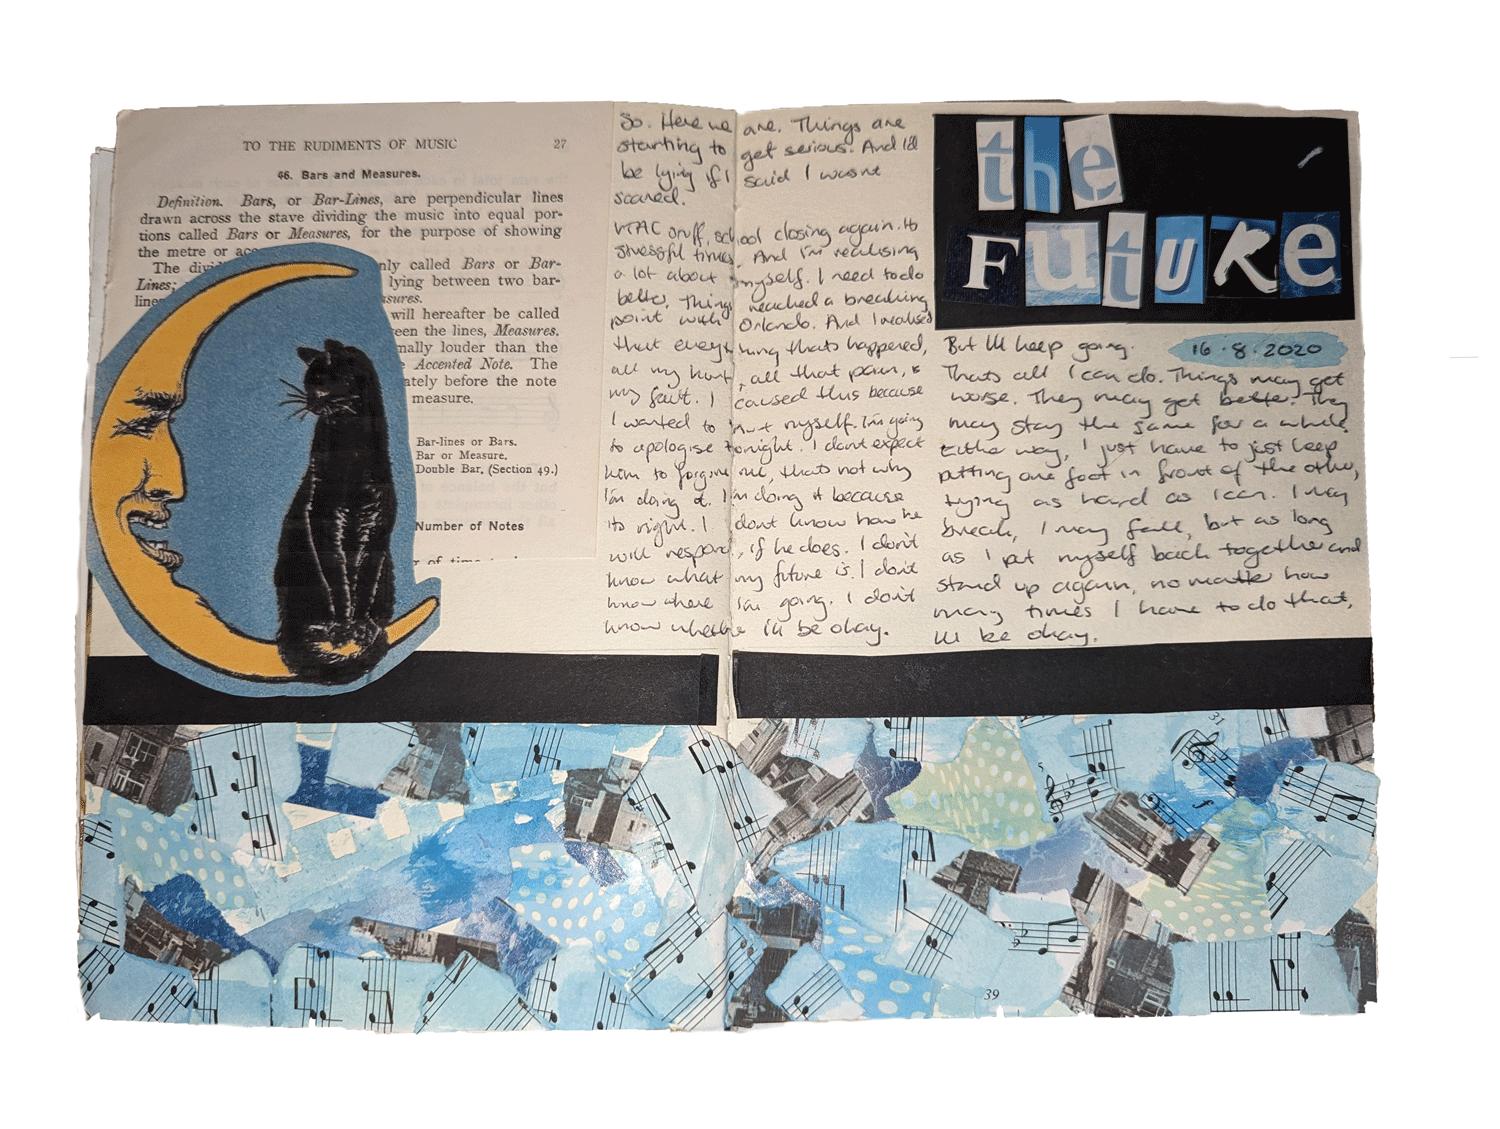 TO THE RUDIMENTS OF MUSIC 27
46. Bars and Measures.
Definition. Bars, or Bar-Lines, are perpendicular lines
drawn across the stave dividing the music into equal por-
tions called Bars or Measures, for the purpose of showing
the metre or acc
The divid nly called Bars or Bar-
Lines; lying between two bar-
lines asures.
will hereafter be called
een the lines, Measures.
mally louder than the
Accented Note. The
ately before the note
measure.
Bar-lines or Bars.
Bar or Measure.
Double Bar. (Section 49.)
Number of Notes
So. Here we are. Things are
starting to get serious. And I'd
be lying if I said I wasnt
scared.
VTAC stuff, school closing again. Its
stressful times. And I'm realising
a lot about myself. I need to do
better. Things reached a breaking
point with Orlando. And I realised
that everything thats happened,
all my hurt, all that pain, is
my fault. I caused this because
I wanted to hurt myself. I'm going
to apologise tonight. I dont expect
him to forgive me, thats not why
I'm doing it. I'm doing it because
its right. I dont know how he
will respond, if he does. I don't
know what my future is. I don't
know where I'm going. I don't
know whether I'll be okay.
the
FUTURE
16.8.2020
But I'll keep going.
Thats all I can do. Things may get
worse. They may get better. They
may stay the same for a while.
Either way, I just have to just keep
putting one foot in front of the other,
trying as hard as I can. I may
break, I may fall, but as long
as I put myself back together and
stand up again, no matter how
many times I have to do that,
I'll be okay.
31
f
39